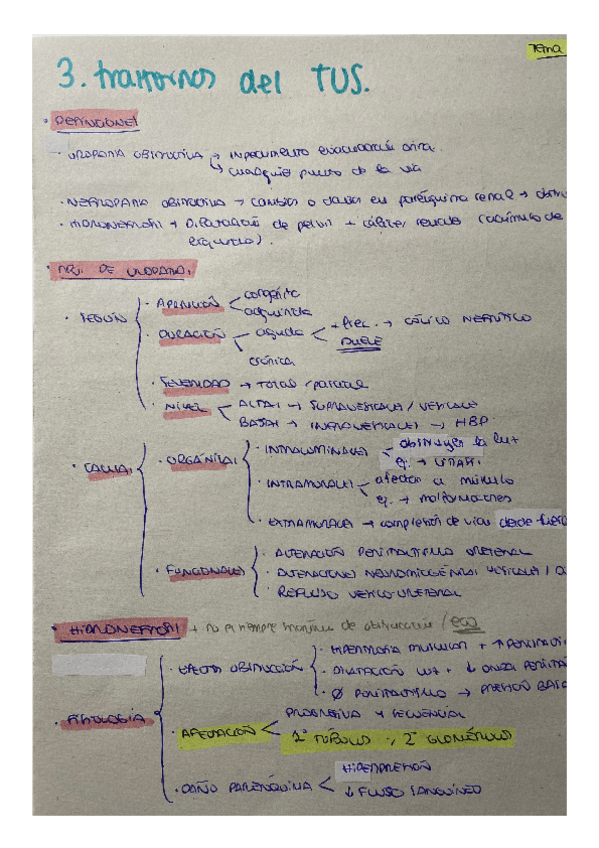 Tema
3. trastornos del TUS.
· DEFINICIONES
- UROPATIA OBSTRUCTIVA → IMPEDIMENTO evacuación orina.
↳ cualquier punto de la vía
· NEFROPATIA OBSTRUCTIVA → cambios o daños en parénquima renal →
· HIDRONEFROSIS → Dilatación de pelvis + cálices renales (sinónimo de
izquierda).
DE UROPATIA
· SEGÚN
· APARICIÓN < congénita
adquirida
· DURACIÓN < aguda < + frec. → CÓLICO NEFRÍTICO
DUELE
crónica
· SEVERIDAD → TOTAL / parcial
· NIVEL < ALTAS → SUPRAVESICALES / VESICALES
BAJAS → INFRAVESICALES → HBP
· CAUSAS
· ORGÁNICAS
· INTRALUMINALES < obstruyen la luz
ej. → LITIASIS
· INTRAMURALES < afectan a músculo
ej. → malformaciones
· EXTRAMURALES → compresión de vías desde fuera
· FUNCIONALES
· ALTERACIÓN PERISTALTISMO URETERAL
· ALTERACIONES NEUROMIOGÉNICAS VESICALES /
· REFLUJO VESICO-URETERAL
· HIDRONEFROSIS → no siempre sinónimo de obstrucción / eco
· FISIOLOGÍA
· EFECTO OBSTRUCCIÓN
· HIPERTROFIA MUSCULAR + ↑
· DILATACIÓN LUZ + ↓ ONDA
· Ø PERISTALTISMO → PRESIÓN
· AFECTACIÓN < PROGRESIVA Y SECUENCIAL
1º TÚBULOS, 2º GLOMÉRULOS
· DAÑO PARÉNQUIMA < HIPERPRESIÓN
↓ FLUJO SANGUÍNEO